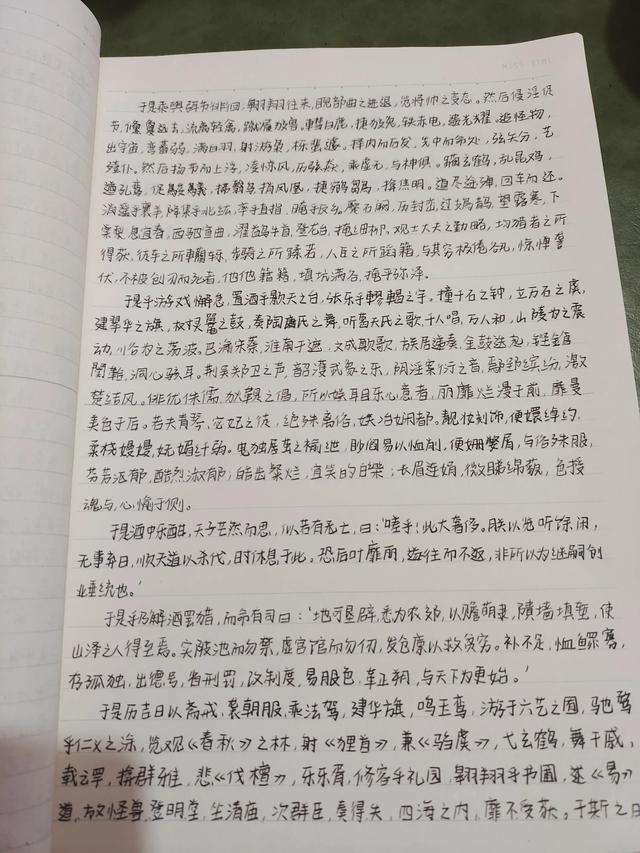 于是乘舆弭节徘徊,翱翔往来,睨部曲之进退,览将帅之变态。然后侵淫促
节,儵夐远去,流离轻禽,蹴履狡兽,轊白鹿,捷狡兔,轶赤电,遗光耀。追怪物,
出宇宙,弯蕃弱,满白羽,射游枭,栎蜚遽。择肉而后发,先中而命处,弦矢分,艺
殪仆。然后扬节而上浮,凌惊风,历骇猋,乘虚无,与神俱。躏玄鹤,乱昆鸡,
遒孔鸾,促鵔鸃,拂翳鸟,捎凤凰,捷鹓雏,揜焦明。道尽途殚,回车而还。
消遥乎襄羊,降集乎北纮,率乎直指,晻乎反乡。蹷石阙,历封峦,过鳷鹊,望露寒,下
棠梨,息宜春,西驰宣曲,濯鹢牛首,登龙台,掩细柳,观士大夫之勤略,均猎者之所
得获,徒车之所轥轹,步骑之所蹂若,人臣之所蹈籍,与其穷极倦谻,惊惮詟
伏,不被创刃而死者,他他籍籍,填坑满谷,掩平弥泽。
于是乎游戏懈怠,置酒乎颢天之台,张乐乎轇輵之宇。撞千石之钟,立万石之虡,
建翠华之旗,树灵鼍之鼓,奏陶唐氏之舞,听葛天氏之歌,千人唱,万人和,山陵为之震
动,川谷为之荡波。巴渝宋蔡,淮南干遮,文成颠歌,族居递奏,金鼓迭起,铿鎗
闛鞈,洞心骇耳。荆吴郑卫之声,韶濩武象之乐,阴淫案衍之音,鄢郢缤纷,激
楚结风。俳优侏儒,狄鞮之倡,所以娱耳目乐心意者,丽靡烂漫于前,靡曼
美色于后。若夫青琴、宓妃之徒,绝殊离俗,妖冶娴都。靓妆刻饰,便嬛绰约,
柔桡嫚嫚,妩媚纤弱。曳独茧之褕绁,眇阎易以恤削,便姗嫳屑,与俗殊服,
芬芳沤郁,酷烈淑郁;皓齿粲烂,宜笑的皪;长眉连娟,微睇绵藐,色授
魂与,心愉于侧。
于是酒中乐酣,天子芒然而思,似若有亡,曰:‘嗟乎!此大奢侈。朕以览听馀闲,
无事弃日,顺天道以杀伐,时休息于此。恐后叶靡丽,遂往而不返,非所以为继嗣创
业垂统也。’
于是乎乃解酒罢猎,而命有司曰:‘地可垦辟,悉为农郊,以赡萌隶,隤墙填堑,使
山泽之人得至焉。实陂池而勿禁,虚宫馆而勿仞,发仓廪以救贫穷。补不足,恤鳏寡,
存孤独,出德号,省刑罚,改制度,易服色,革正朔,与天下为更始。’
于是历吉日以斋戒,袭朝服,乘法驾,建华旗,鸣玉鸾,游于六艺之囿,驰骛
乎仁义之涂,览观《春秋》之林,射《狸首》,兼《驺虞》,弋玄鹤,舞干戚,
载云罕,揜群雅,悲《伐檀》,乐乐胥,修容乎礼园,翱翔乎书圃,述《易》
道,放怪兽,登明堂,坐清庙,次群臣,奏得失,四海之内,靡不受获。于斯之日